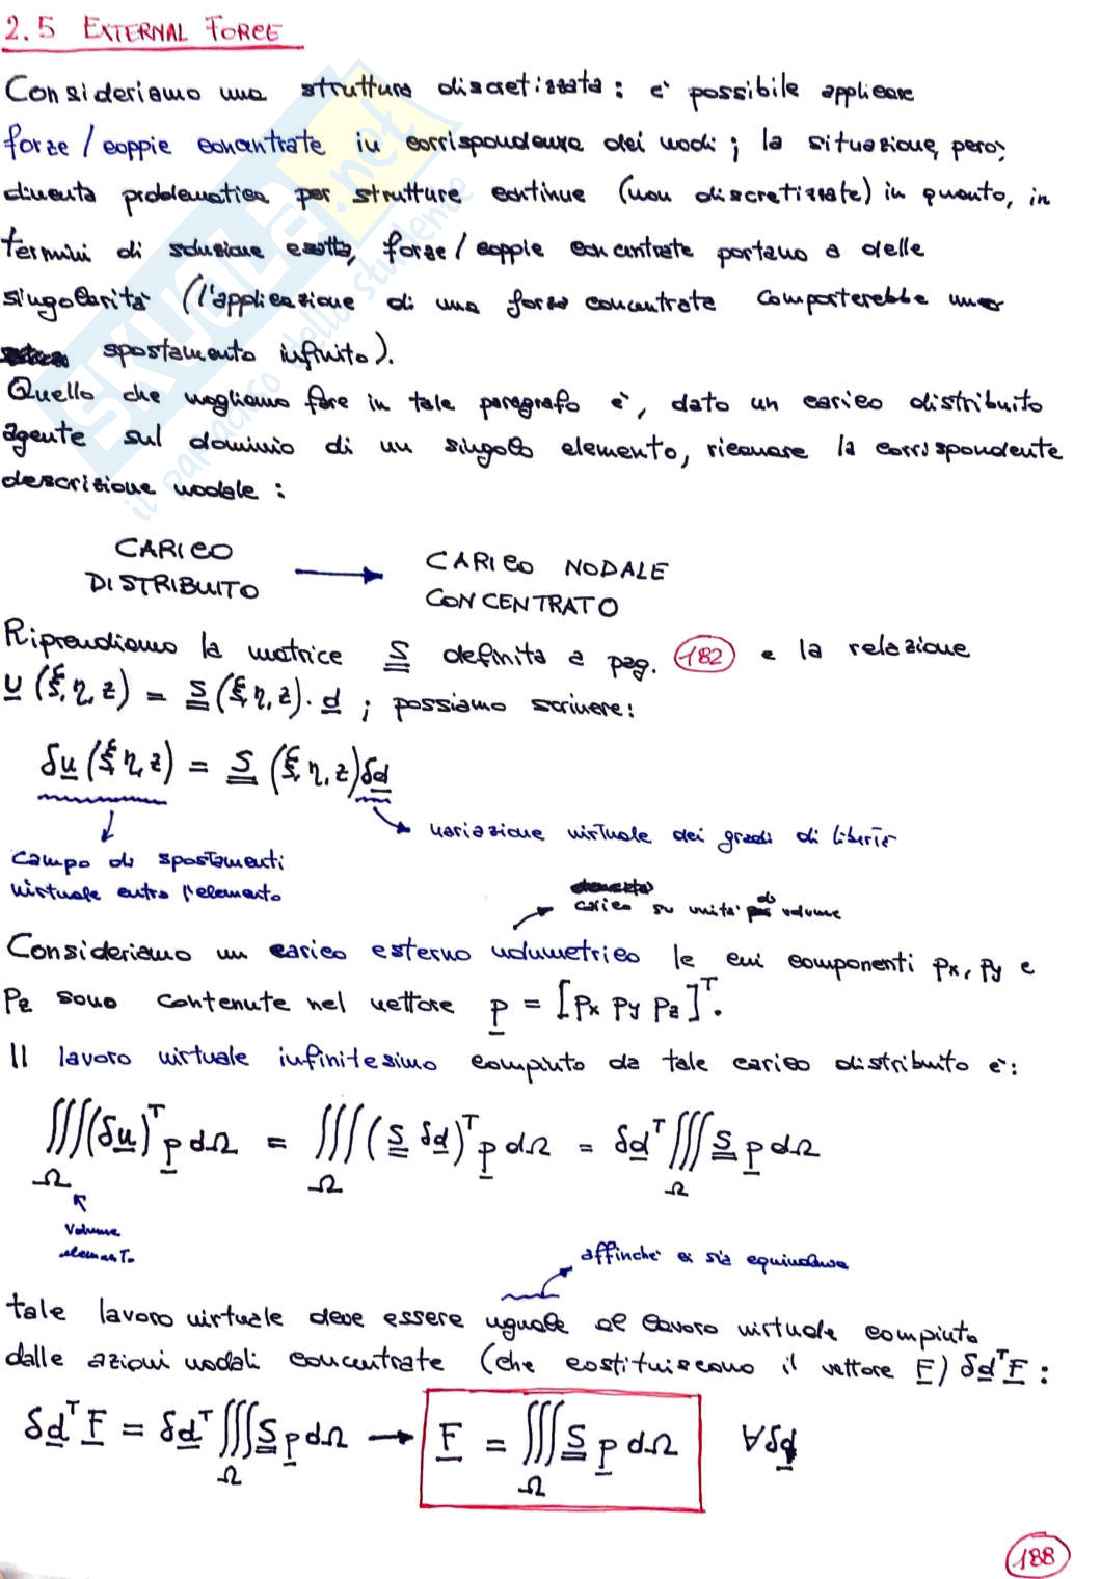 2.5 EXTERNAL FORCE
Consideriamo una struttura discretizzata: è possibile applicare
forze / coppie concentrate in corrispondenza dei nodi; la situazione, però,
diventa problematica per strutture continue (non discretizzate) in quanto, in
termini di soluzione esatta, forze / coppie concentrate portano a delle
singolarità (l'applicazione di una forza concentrata comporterebbe uno
spostamento infinito).
Quello che vogliamo fare in tale paragrafo è, dato un carico distribuito
agente sul dominio di un singolo elemento, ricavare la corrispondente
descrizione nodale:
CARICO
DISTRIBUITO
CARICO NODALE
CONCENTRATO
Riprendiamo la matrice S definita a pag. 182 e la relazione
u (ξ, η, z) = S (ξ, η, z) · d ; possiamo scrivere:
δu (ξ, η, z) = S (ξ, η, z) δd
variazione virtuale dei gradi di libertà
campo di spostamenti
virtuale entro l'elemento
carico su unità di volume
Consideriamo un carico esterno volumetrico le cui componenti px, py e
pz sono contenute nel vettore p = [px py pz]^T.
Il lavoro virtuale infinitesimo compiuto da tale carico distribuito è:
∭_Ω (δu)^T p dΩ = ∭_Ω (S δd)^T p dΩ = δd^T ∭_Ω S p dΩ
Volume
elemento
affinché ci sia equivalenza
tale lavoro virtuale deve essere uguale al lavoro virtuale compiuto
dalle azioni nodali concentrate (che costituiscono il vettore F) δd^T F :
δd^T F = δd^T ∭_Ω S p dΩ → F = ∭_Ω S p dΩ ∀δd
188
SKUOLA.net
il paradiso dello studente